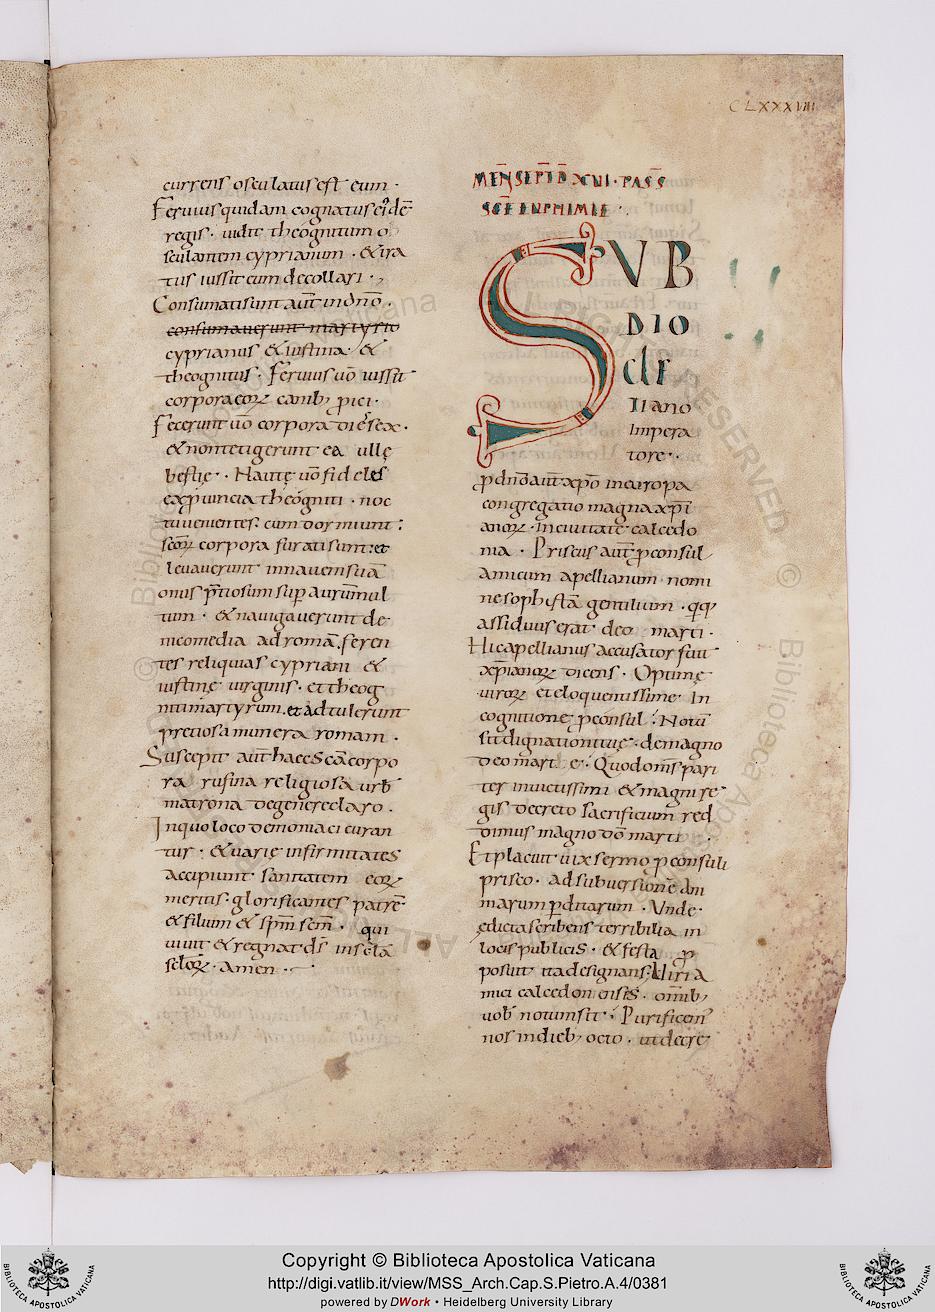 CLXXXVIIII
currens osculatus est eum ·
Feruius quidam cognatus eidē
regis · uidit theognitum o
sculantem cyprianum · & ira
tus iussit eum decollari ·
Consumati sunt aut̄ in dn̄o ·
consumauerunt martyrio
cyprianus & iustina · &
theognitus · Feruius uō iussit
corpora eoꝝ canib; proici ·
Fecerunt uō corpora dies sex ·
& non tetigerunt ea ullę
bestię · Nautę uō fideles
ex prouincia theogniti · noc
tu uenientes · cum dormiunt ·
sc̄oꝝ corpora furati sunt · et
leuauerunt in nauem suā
onus p̄tiosum sup̄ aurum mul
tum · & nauigauerunt de
nicomedia ad romā · feren
tes reliquias cypriani &
iustinę uirginis · et theog
niti martyrum · et adtulerunt
pretiosa munera romam ·
Suscepit aut̄ haec sc̄a corpo
ra rufina religiosa urb̄
matrona de genere claro ·
In quo loco demoniaci curan
tur · & uarię infirmitates
accipiunt sanitatem eoꝝ
meritis · glorificantes patrē
& filium & sp̄m sc̄m · qui
uiuit & regnat ds̄ in sc̄la
sc̄loꝝ · amen ·
MEN̄ SEPT̄B̄ XVI · PASS̄
SC̄E EUPHIMIE ·
SVB
DIO
clE
Tiano
Impera
tore ·
p̄dn̄o aut̄ xp̄o in europa
congregatio magna xp̄i
anoꝝ · in ciuitate calcedo
nia · Priscus aut̄ p̄consul
amicum apellianum nomi
ne sophistā gentilium · qꝗ
assiduus erat deo marti ·
Hic apellianus accusator fuit
xp̄ianoꝝ dicens · Optimę
uiroꝝ et eloquentissime In
cognitione p̄consul · Notū
sit dignationi tuę · de magno
deo mart e · Quod om̄s pari
ter inuictissimi & magni re
gis decreto sacrificium red
dimus magno dō marti
Et placuit uix sermo p̄consuli
prisco · ad subuersionē ani
marum p̄ditarum · Vnde
edicta scribens terribilia in
locis publicis · & festa p̄
posuit ita designans · Uiri a
mici calcedonensis · om̄ib;
uob̄ notum sit · Purificem̄
nos in dieb; octo · ut decre
Copyright © Biblioteca Apostolica Vaticana
http://digi.vatlib.it/view/MSS_Arch.Cap.S.Pietro.A.4/0381
powered by DWork • Heidelberg University Library